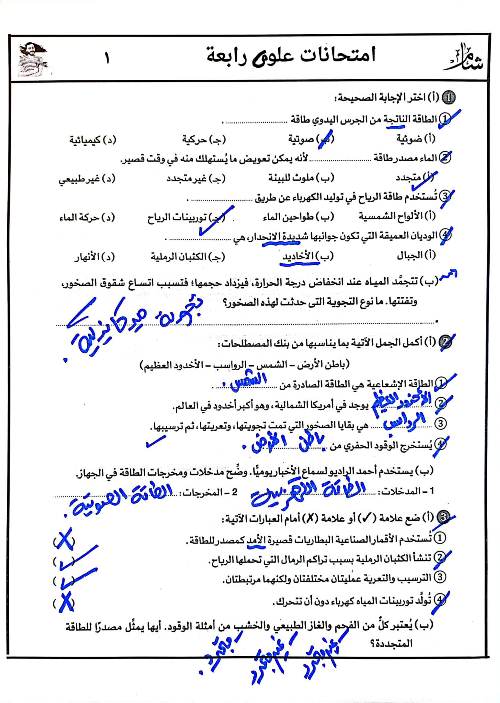 امتحانات علوم رابعة
١
١ (أ) اختر الإجابة الصحيحة:
١ الطاقة الناتجة من الجرس اليدوي طاقة ....................
(أ) ضوئية (ب) صوتية (جـ) حركية (د) كيميائية
٢ الماء مصدر طاقة .................... لأنه يمكن تعويض ما يُستهلك منه في وقت قصير.
(أ) متجدد (ب) ملوث للبيئة (جـ) غير متجدد (د) غير طبيعي
٣ تُستخدم طاقة الرياح في توليد الكهرباء عن طريق ....................
(أ) الألواح الشمسية (ب) طواحين الماء (جـ) توربينات الرياح (د) حركة الماء
٤ الوديان العميقة التي تكون جوانبها شديدة الانحدار، هي ....................
(أ) الجبال (ب) الأخاديد (جـ) الكثبان الرملية (د) الأنهار
(ب) تتجمَّد المياه عند انخفاض درجة الحرارة، فيزداد حجمها؛ فتسبب اتساع شقوق الصخور،
وتفتتها. ما نوع التجوية التى حدثت لهذه الصخور؟
تجوية ميكانيكية .
٢ (أ) أكمل الجمل الآتية بما يناسبها من بنك المصطلحات:
(باطن الأرض – الشمس – الرواسب – الأخدود العظيم)
١ الطاقة الإشعاعية هي الطاقة الصادرة من الشمس .
٢ الأخدود العظيم يوجد في أمريكا الشمالية، وهو أكبر أخدود في العالم.
٣ الرواسب هي بقايا الصخور التي تمت تجويتها، وتعريتها، ثم ترسيبها.
٤ يُستخرج الوقود الحفري من باطن الأرض .
(ب) يستخدم أحمد الراديو لسماع الأخبار يوميًّا. وضِّح مدخلات ومخرجات الطاقة في الجهاز.
1 - المدخلات: الطاقة الكهربية 2 - المخرجات: الطاقة الصوتية .
٣ (أ) ضع علامة (✓) أو علامة (✗) أمام العبارات الآتية:
١ تُستخدم الأقمار الصناعية البطاريات قصيرة الأمد كمصدر للطاقة. (✗)
٢ تنشأ الكثبان الرملية بسبب تراكم الرمال التي تحملها الرياح. (✓)
٣ الترسيب والتعرية عمليتان مختلفتان ولكنهما مرتبطتان. (✓)
٤ تُولِّد توربينات المياه كهرباء دون أن تتحرك. (✗)
(ب) يُعتبر كلٌّ من الفحم والغاز الطبيعي والخشب من أمثلة الوقود. أيها يمثِّل مصدرًا للطاقة
المتجددة؟
غير متجدد غير متجدد متجدد .